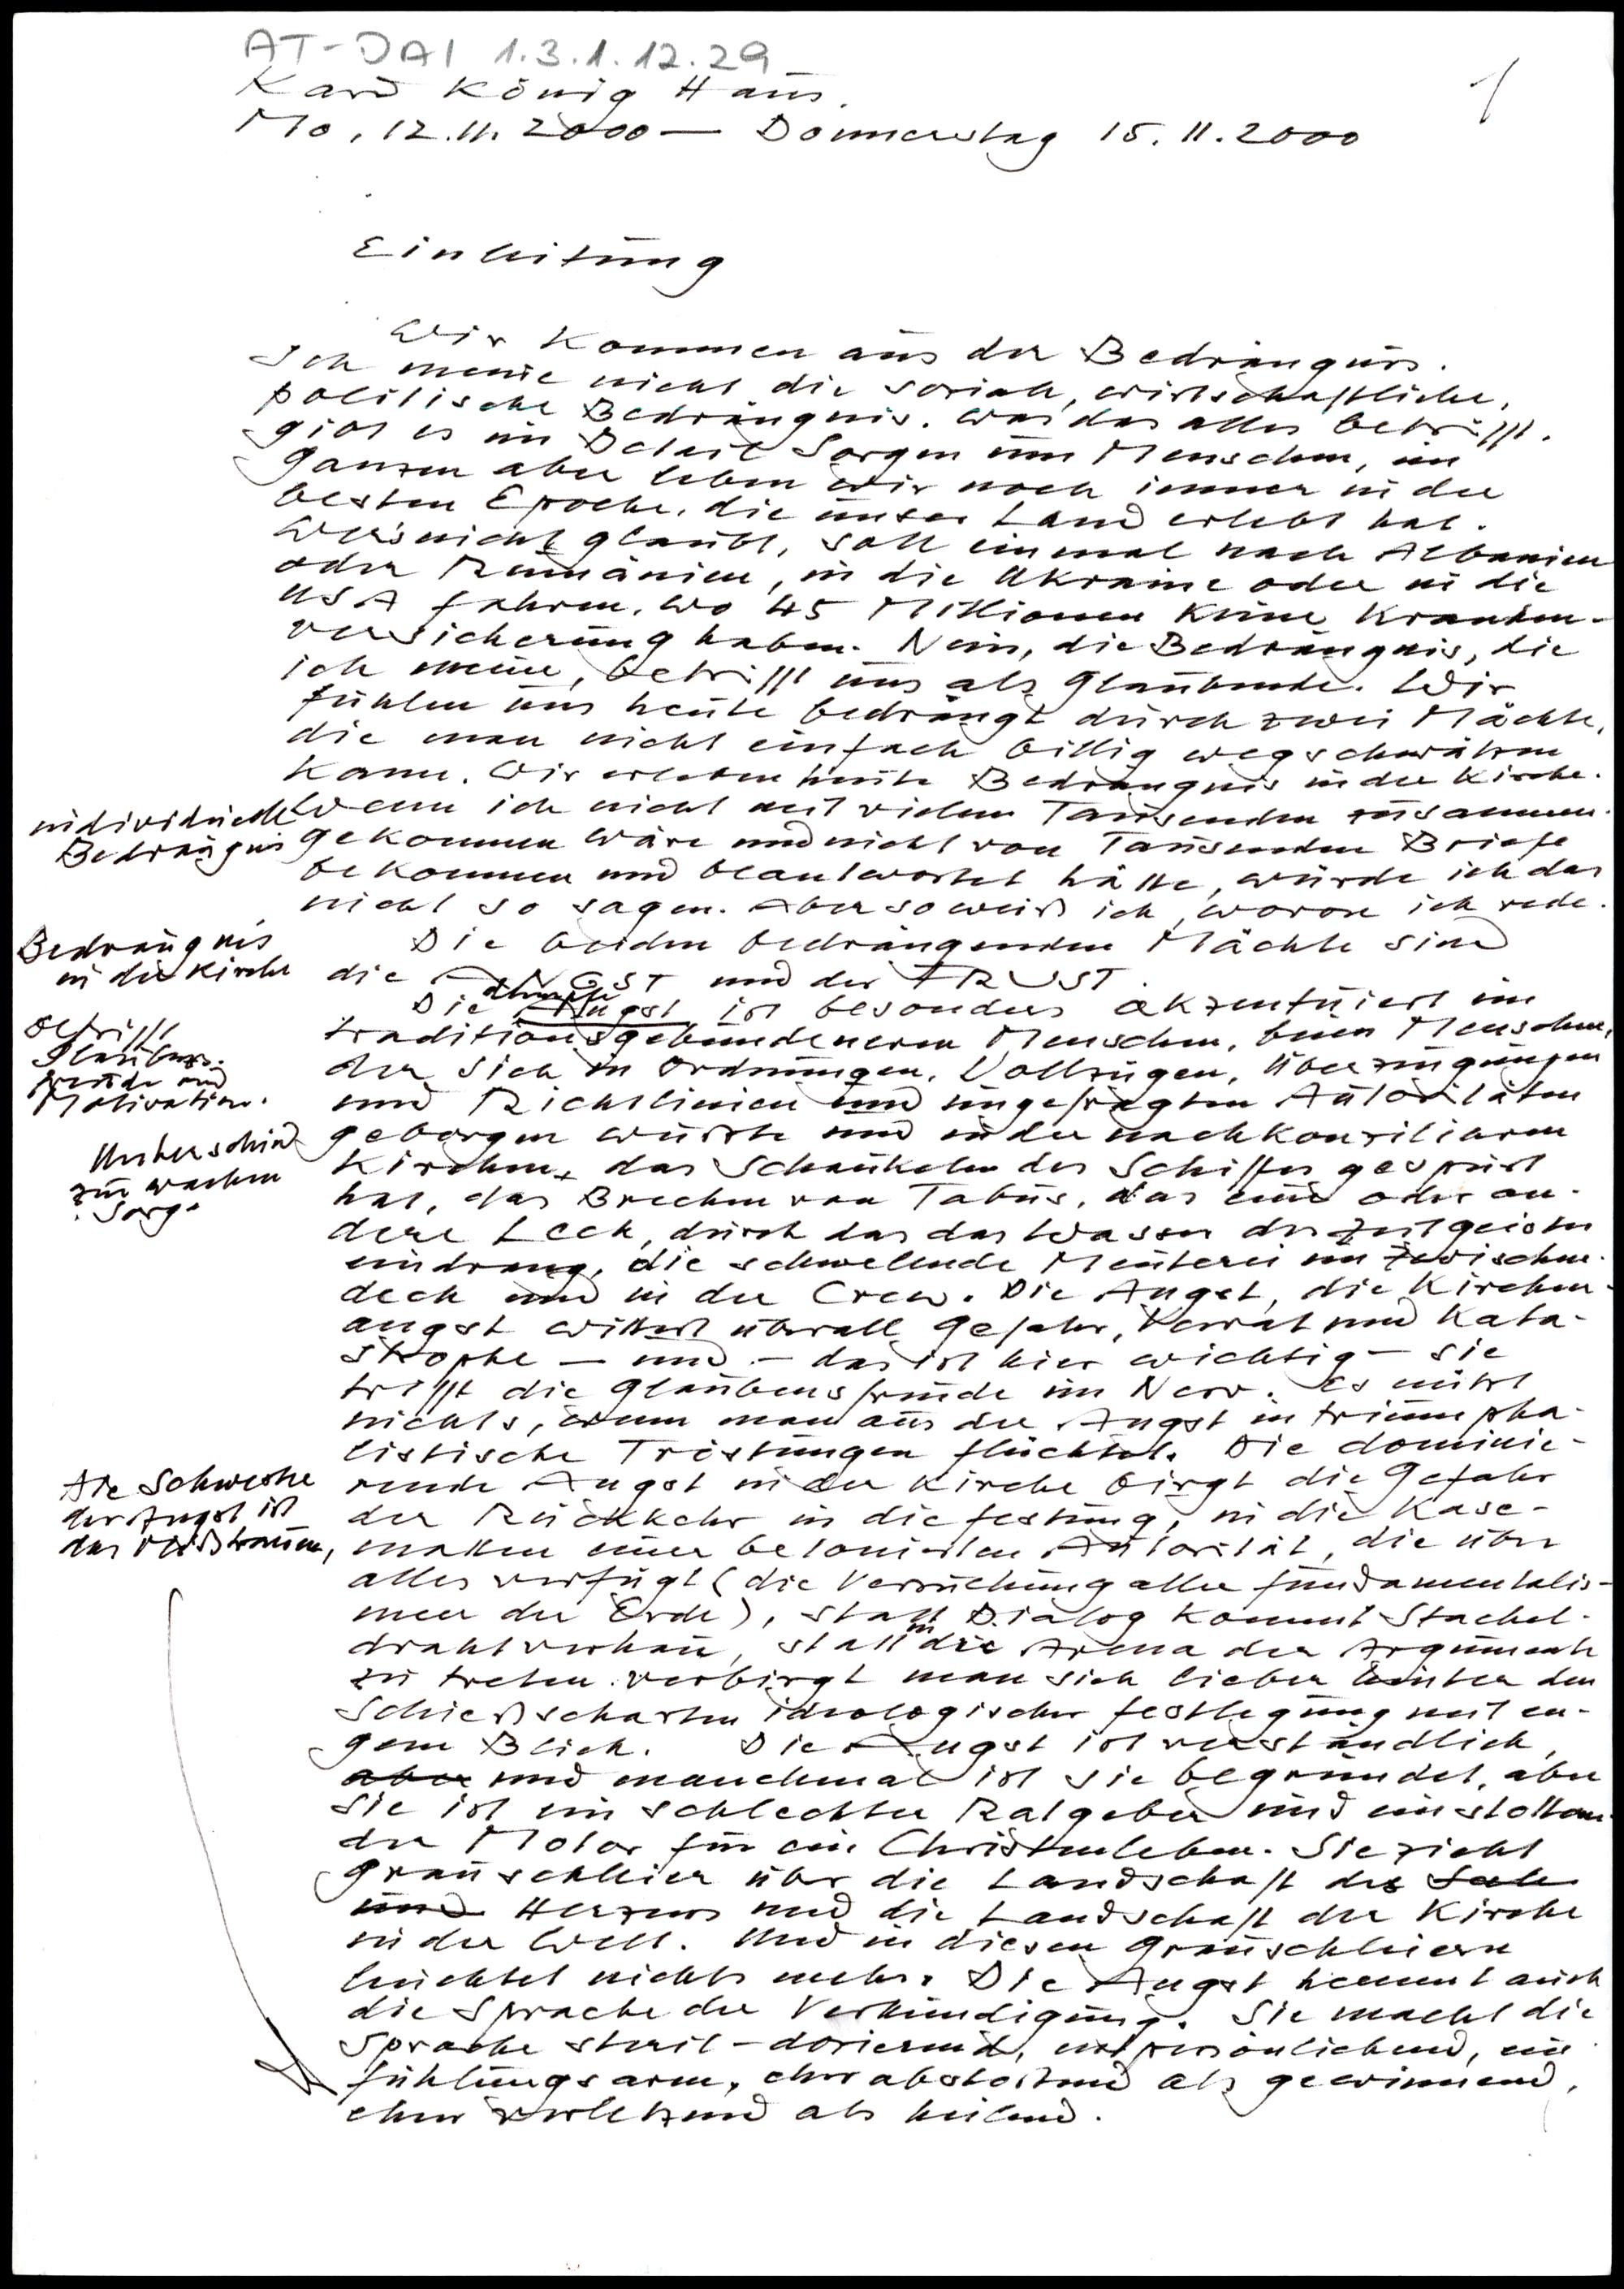 AT-DAI 1.3.1.12.29
1
Kard König Haus.
Mo, 12.11.2000 — Donnerstag 15.11.2000
Einleitung
Wir kommen aus der Bedrängnis.
Ich meine nicht die soziale, wirtschaftliche,
politische Bedrängnis. Was das alles betrifft,
gibt es im Detail Sorgen um Menschen, im
Ganzen aber leben wir noch immer in der
besten Epoche, die unser Land erlebt hat.
Wer's nicht glaubt, soll einmal nach Albanien
oder Rumänien, in die Ukraine oder in die
USA fahren, wo 45 Millionen keine Kranken-
versicherung haben. Nein, die Bedrängnis, die
ich meine, betrifft uns als Glaubende. Wir
fühlen uns heute bedrängt durch zwei Mächte,
die man nicht einfach billig wegschwätzen
kann. Wir erleben heute Bedrängnis in der Kirche.
individuelle
Bedrängnis
Wenn ich nicht mit vielen Tausenden zusammen-
gekommen wäre und nicht von Tausenden Briefe
bekommen und beantwortet hätte, würde ich das
nicht so sagen. Aber so weiß ich, wovon ich rede.
Bedrängnis
in der Kirche
Die beiden bedrängenden Mächte sind
die ANGST und der FRUST.
betrifft
Glaubens-
freude und
Motivation.
Die Angst ist besonders akzentuiert im
traditionsgebundeneren Menschen, beim Menschen,
der sich in Ordnungen, Vollzügen, Überzeugungen
und Richtlinien und ungefragten Autoritäten
Unterschied
zur wachen
Sorge
geborgen wußte und in der nachkonziliaren
Kirche das Schaukeln des Schiffes gespürt
hat, das Brechen von Tabus, das eine oder an-
dere Leck, durch das das Wasser des Zeitgeistes
eindrang, die schwelende Meuterei im Zwischen-
deck und in der Crew. Die Angst, die Kirchen-
angst wittert überall Gefahr, Verrat und Kata-
strophe — und — das ist hier wichtig — sie
trifft die Glaubensfreude im Nerv. Es nützt
nichts, wenn man aus der Angst in triumpha-
listische Tröstungen flüchtet. Die dominie-
Die Schwester
der Angst ist
das Mißtrauen,
rende Angst in der Kirche birgt die Gefahr
der Rückkehr in die Festung, in die Kase-
matten einer betonierten Autorität, die über
alles verfügt (die Versuchung aller Fundamentalis-
men der Erde), statt Dialog kommt Stachel-
drahtverhau, statt in die Arena der Argumente
zu treten verbirgt man sich lieber hinter den
Schießscharten ideologischer Festlegung mit en-
gem Blick. Die Angst ist verständlich,
aber und manchmal ist sie begründet, aber
sie ist ein schlechter Ratgeber und ein stottern-
der Motor für ein Christenleben. Sie zieht
Grauschleier über die Landschaft des Seele
und Herzens und die Landschaft der Kirche
in der Welt. Und in diesen Grauschleiern
leuchtet nichts mehr. Die Angst hemmt auch
die Sprache der Verkündigung. Sie macht die
Sprache steril-dozierend, unpersönlichend, ein-
fühlungsarm, eher abstoßend als gewinnend,
eher verletzend als heilend.